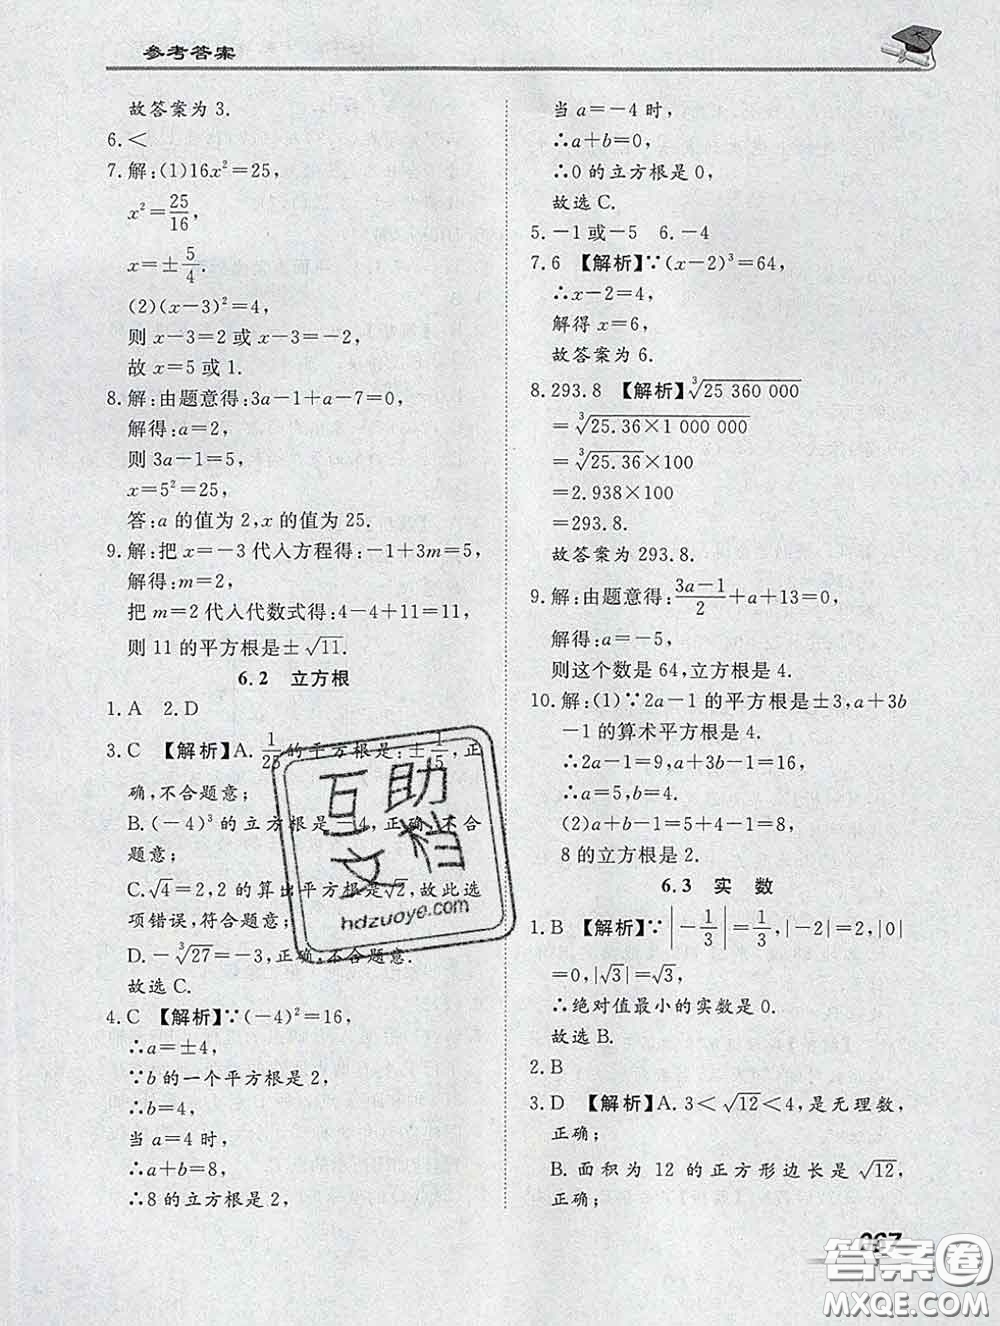 参考答案
故答案为 3.
6.<
7.解:(1)16x²=25,
x²=25/16,
x=±5/4.
(2)(x-3)²=4,
则 x-3=2 或 x-3=-2,
故 x=5 或 1.
8.解:由题意得:3a-1+a-7=0,
解得:a=2,
则 3a-1=5,
x=5²=25,
答:a 的值为 2,x 的值为 25.
9.解:把 x=-3 代入方程得:-1+3m=5,
解得:m=2,
把 m=2 代入代数式得:4-4+11=11,
则 11 的平方根是±√11.
6.2 立方根
1.A 2.D
3.C 【解析】A.1/25的平方根是:±1/5,正
确,不合题意;
B.(-4)³ 的立方根是-4,正确,不合
题意;
C.√4=2,2 的算术平方根是√2,故此选
项错误,符合题意;
D.-³√27=-3,正确,不合题意.
故选 C.
4.C 【解析】∵(-4)²=16,
∴a=±4,
∵b 的一个平方根是 2,
∴b=4,
当 a=4 时,
∴a+b=8,
∴8 的立方根是 2,
当 a=-4 时,
∴a+b=0,
∴0 的立方根是 0,
故选 C.
5.-1 或-5 6.-4
7.6 【解析】∵(x-2)³=64,
∴x-2=4,
解得 x=6,
故答案为 6.
8.293.8 【解析】³√25 360 000
=³√25.36×1 000 000
=³√25.36×100
=2.938×100
=293.8.
故答案为 293.8.
9.解:由题意得:(3a-1)/2+a+13=0,
解得:a=-5,
则这个数是 64,立方根是 4.
10.解:(1)∵2a-1 的平方根是±3,a+3b
-1 的算术平方根是 4.
∴2a-1=9,a+3b-1=16,
∴a=5,b=4.
(2)a+b-1=5+4-1=8,
8 的立方根是 2.
6.3 实 数
1.B 【解析】∵|-1/3|=1/3,|-2|=2,|0|
=0,|√3|=√3,
∴绝对值最小的实数是 0.
故选 B.
2.B
3.D 【解析】A.3<√12<4,是无理数,
正确;
B.面积为 12 的正方形边长是√12,
正确;
互助
文档
hdzuoye.com
答案圈
MXQE.COM